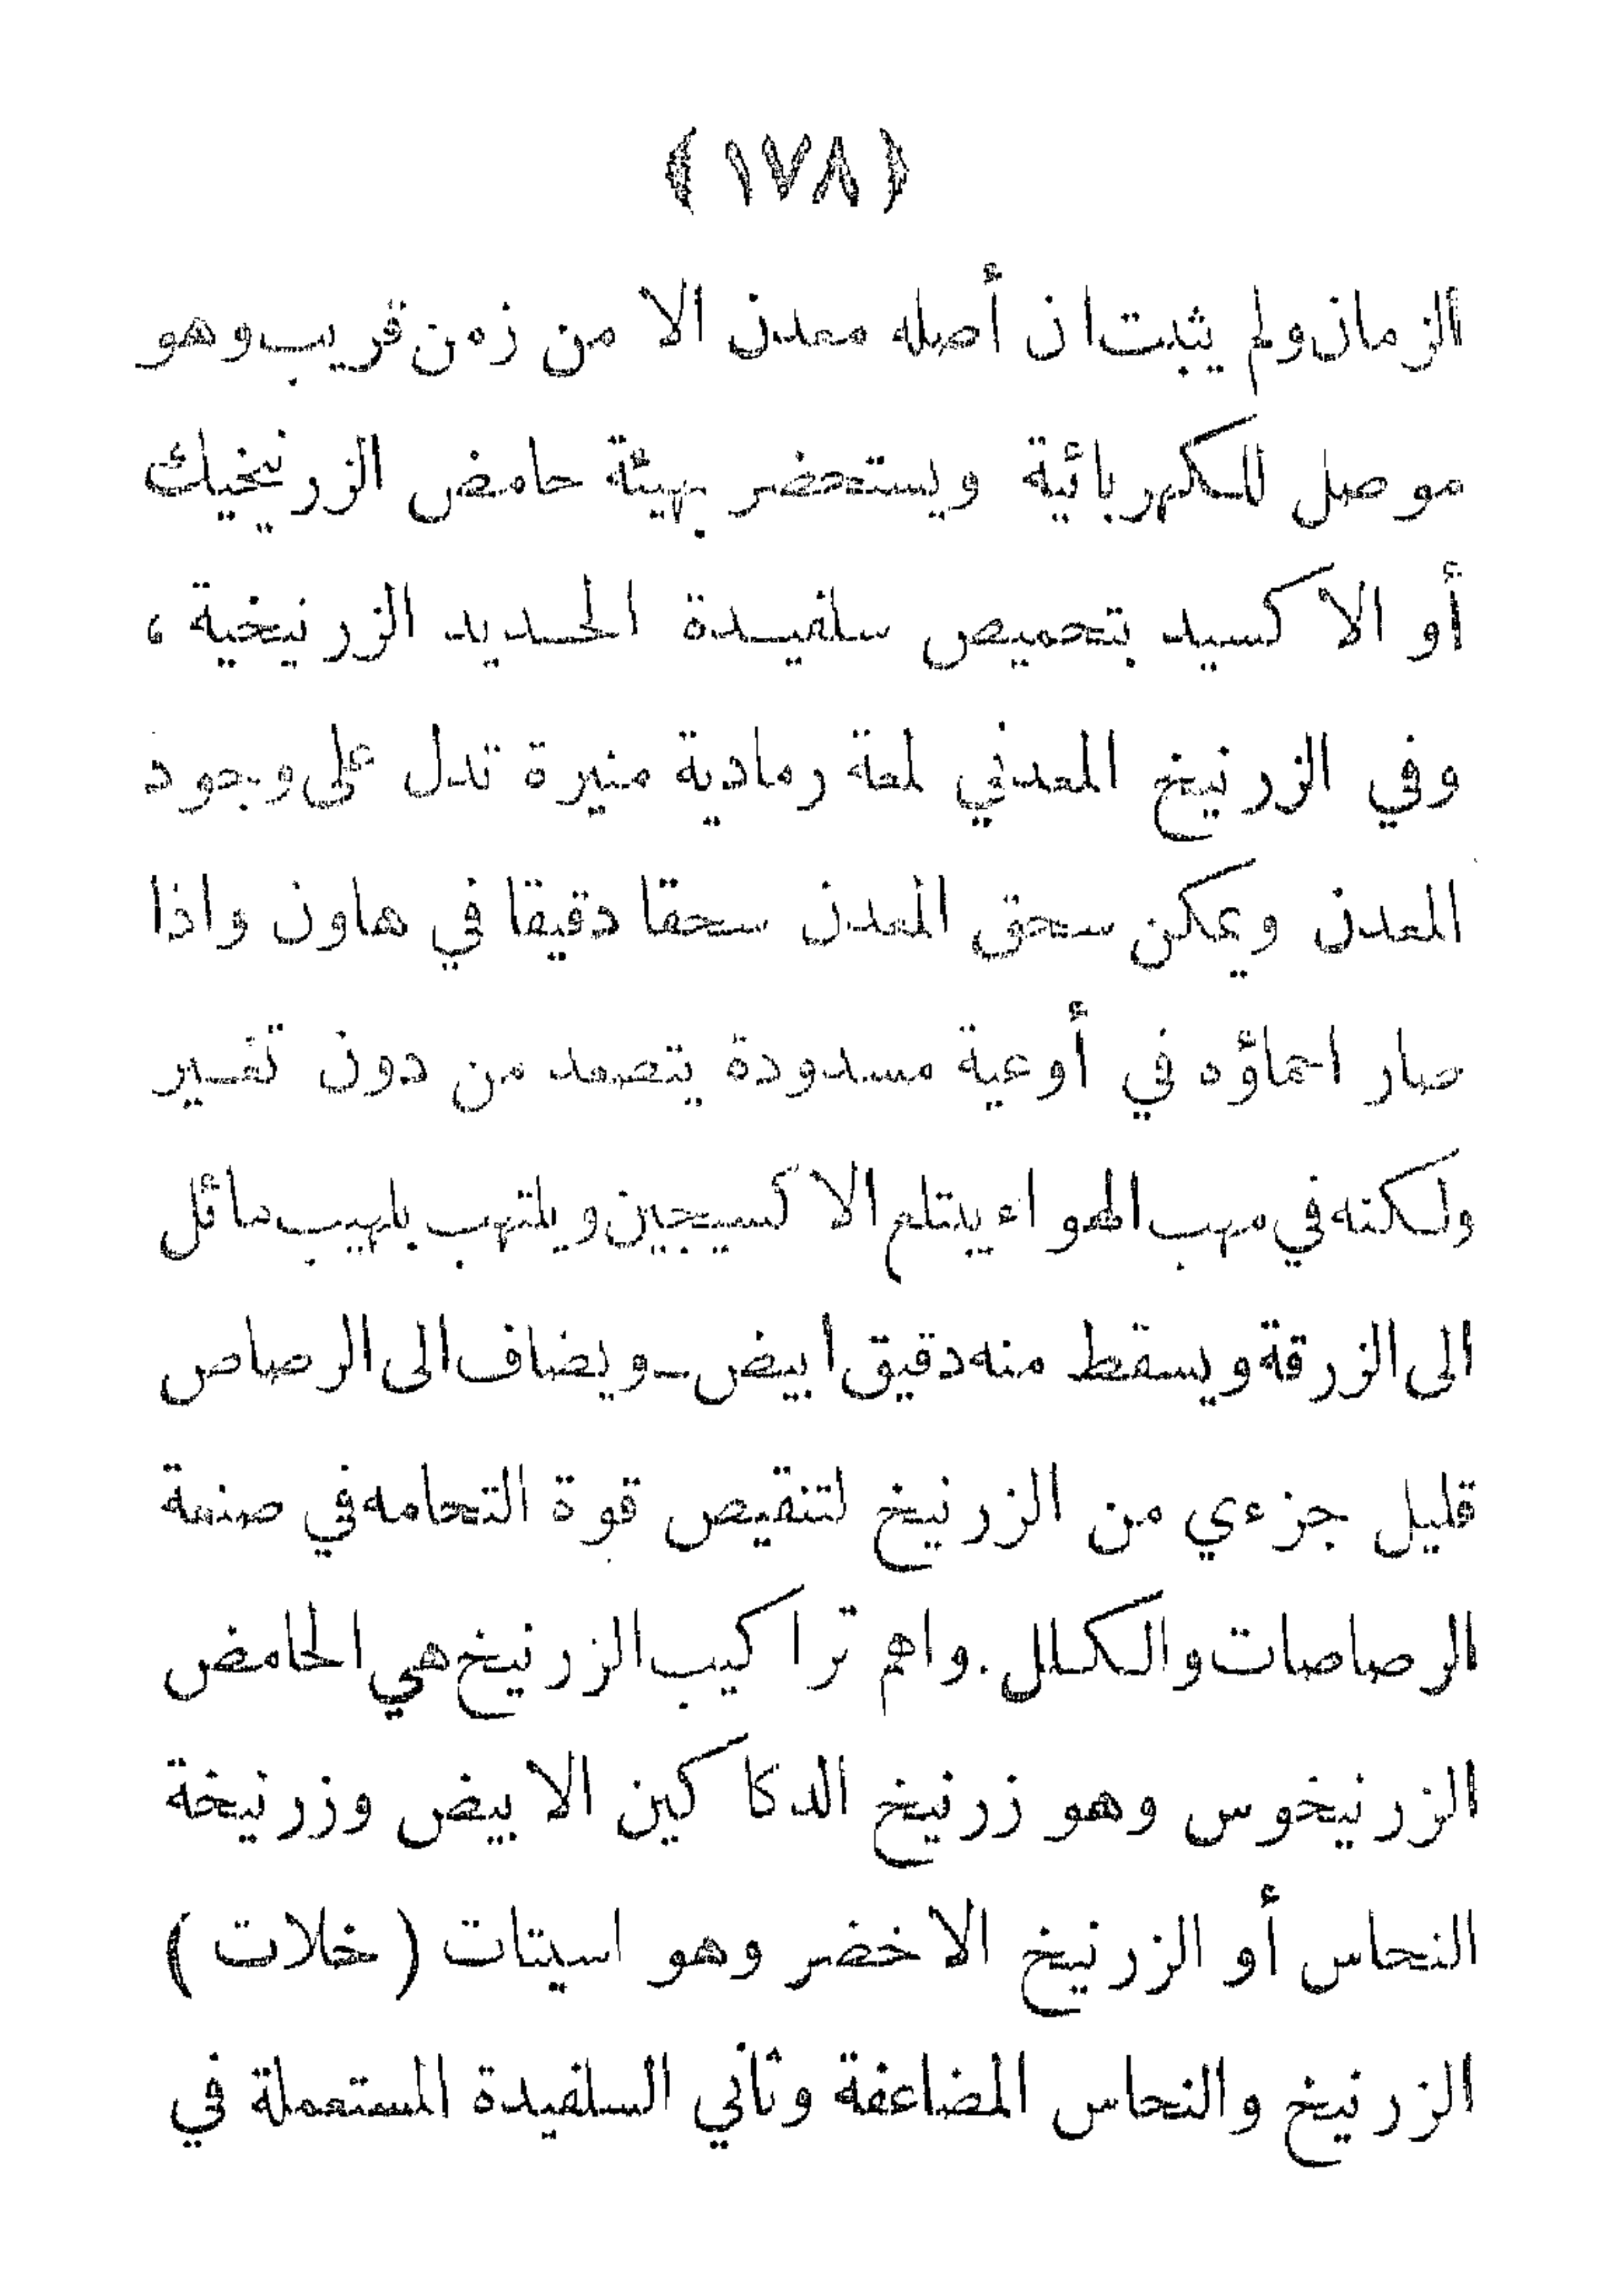 ﴿ ١٧٨ ﴾
الزمان ولم يثبت ان أصله معدن الا من زمن قريب وهو
موصل للكهربائية ويستحضر بهيئة حامض الزرنيخيك
أو الاكسيد بتحميص سلفيدة الحديد الزرنيخية ،
وفي الزرنيخ المعدني لمعة رمادية منيرة تدل على وجود
المعدن ويمكن سحق المعدن سحقا دقيقا في هاون واذا
صار احماؤه في أوعية مسدودة يتصعد من دون تغيير
ولكنه في مهب الهواء يبتلع الاكسيجين ويلتهب بلهيب مائل
الى الزرقة ويسقط منه دقيق ابيض ـ ويضاف الى الرصاص
قليل جزءي من الزرنيخ لتنقيص قوة التحامه في صنعة
الرصاصات والكلل . واهم تراكيب الزرنيخ هي الحامض
الزرنيخوس وهو زرنيخ الدكاكين الابيض وزرنيخة
النحاس أو الزرنيخ الاخضر وهو اسيتات ( خلات )
الزرنيخ والنحاس المضاعفة وثاني السلفيدة المستعملة في